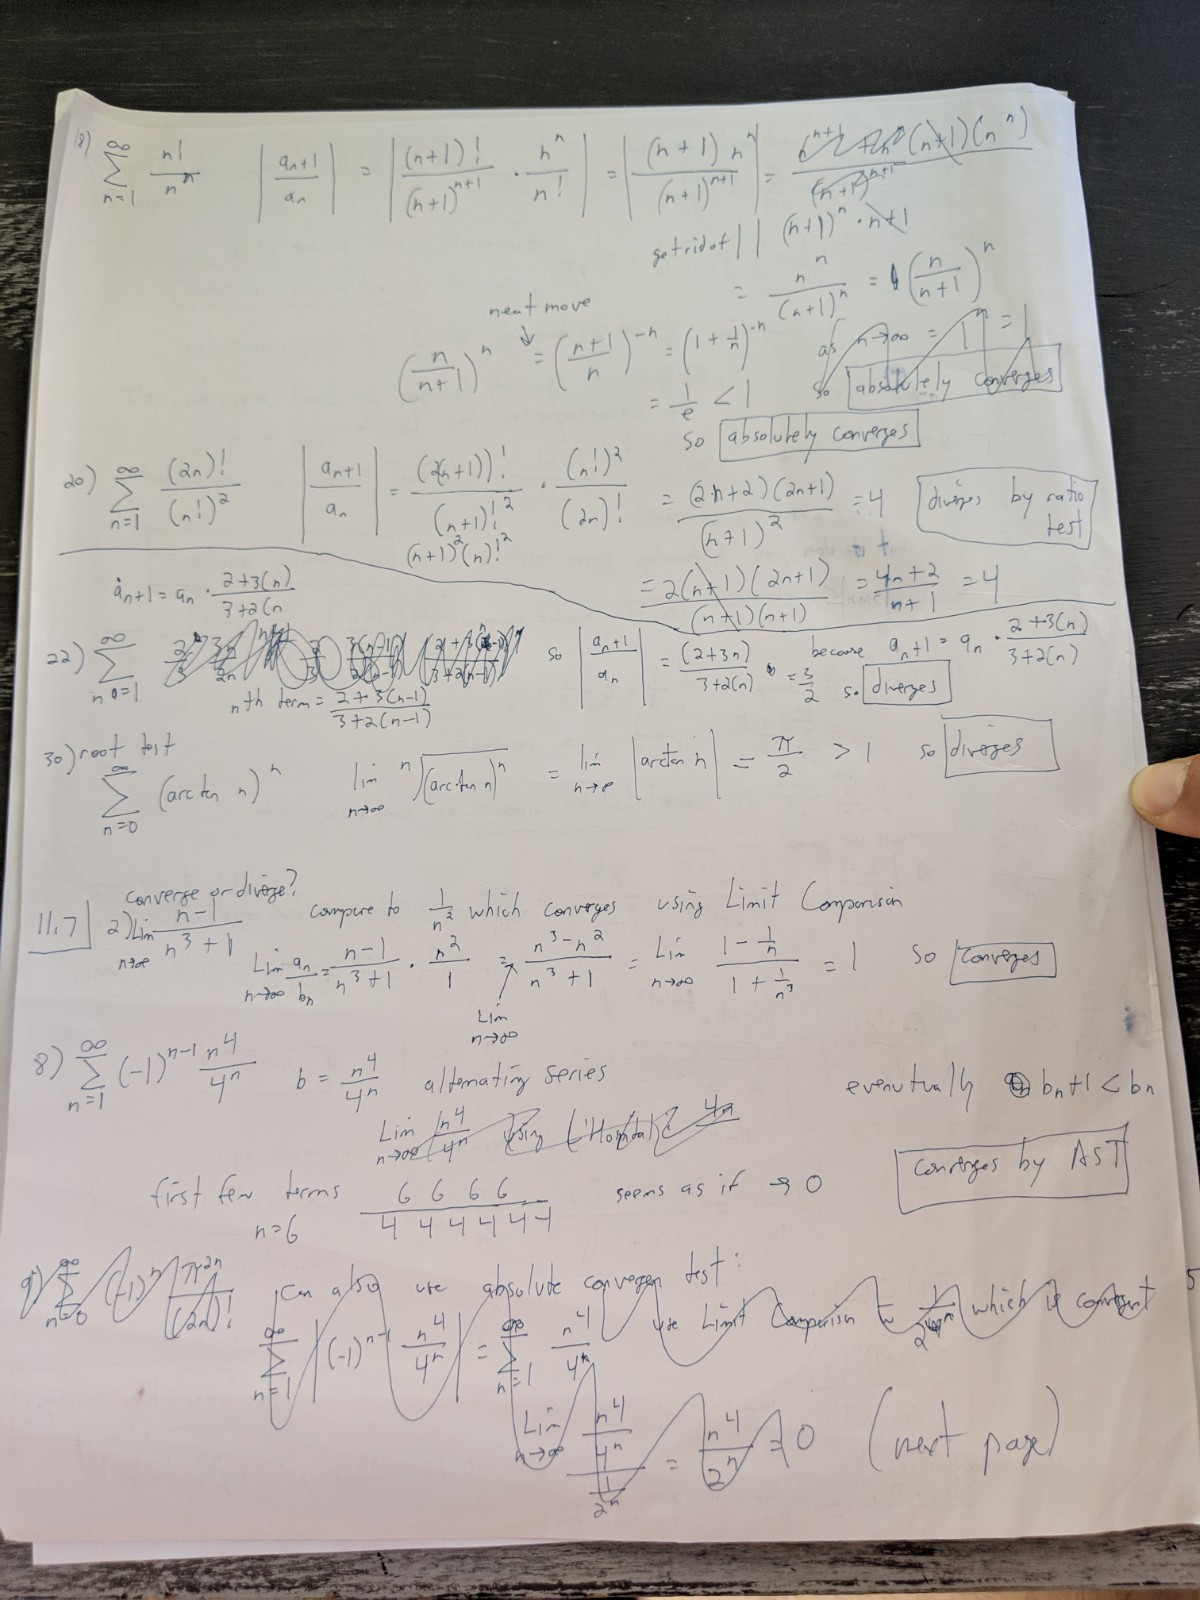 18) ∞∑n=1 n!/n^n |a_n+1/a_n| = |(n+1)!/(n+1)^n+1 · n^n/n!| = |(n+1) n^n/(n+1)^n+1| = (n+1)(n^n)/(n+1)^n+1
get rid of | | (n+1)^n · n+1
= n^n/(n+1)^n = (n/n+1)^n
neat move
as n→∞ = 1 = 1
(n/n+1)^n = (n+1/n)^-n = (1 + 1/n)^-n
so absolutely converges
= 1/e < 1
so absolutely converges
20) ∞∑n=1 (2n)!/(n!)^2 |a_n+1/a_n| = (2(n+1))!/(n+1)!^2 · (n!)^2/(2n)! = (2n+2)(2n+1)/(n+1)^2 = 4 diverges by ratio test
(n+1)^2(n)!^2
= 2(n+1)(2n+1)/(n+1)(n+1) = 4n+2/n+1 = 4
a_n+1 = a_n · 2+3(n)/3+2(n
22) ∞∑n=1 so |a_n+1/a_n| = (2+3n)/3+2(n) = 3/2 because a_n+1 = a_n · 2+3(n)/3+2(n)
so diverges
nth term = 2+3(n-1)/3+2(n-1)
30) root test
∞∑n=0 (arctan n)^n lim n→∞ n√(arctan n)^n = lim n→∞ |arctan n| = π/2 > 1 so diverges
converge or diverge?
11.7 2) Lim n→∞ n-1/n^3+1 compare to 1/n^2 which converges using Limit Comparison
Lim n→∞ a_n/b_n = n-1/n^3+1 · n^2/1 = n^3-n^2/n^3+1 = Lim n→∞ 1-1/n/1+1/n^3 = 1 so converges
Lim n→∞
8) ∞∑n=1 (-1)^n-1 n^4/4^n b = n^4/4^n alternating series eventually b_n+1 < b_n
Lim n→∞ n^4/4^n using L'Hopital: 4n
converges by AST
first few terms 6 6 6 6/4 4 4 4 4 4 seems as if → 0
n=6
9) ∞∑n=0 (-1)^n π^2n/(2n)! can also use absolute convergen test:
∞∑n=1 |(-1)^n-1 n^4/4^n| = ∞∑n=1 n^4/4^n use Limit Comparison w 1/2^n which is convergent 5
Lim n→∞ n^4/4^n/1/2^n = n^4/2^n = 0 (next page)